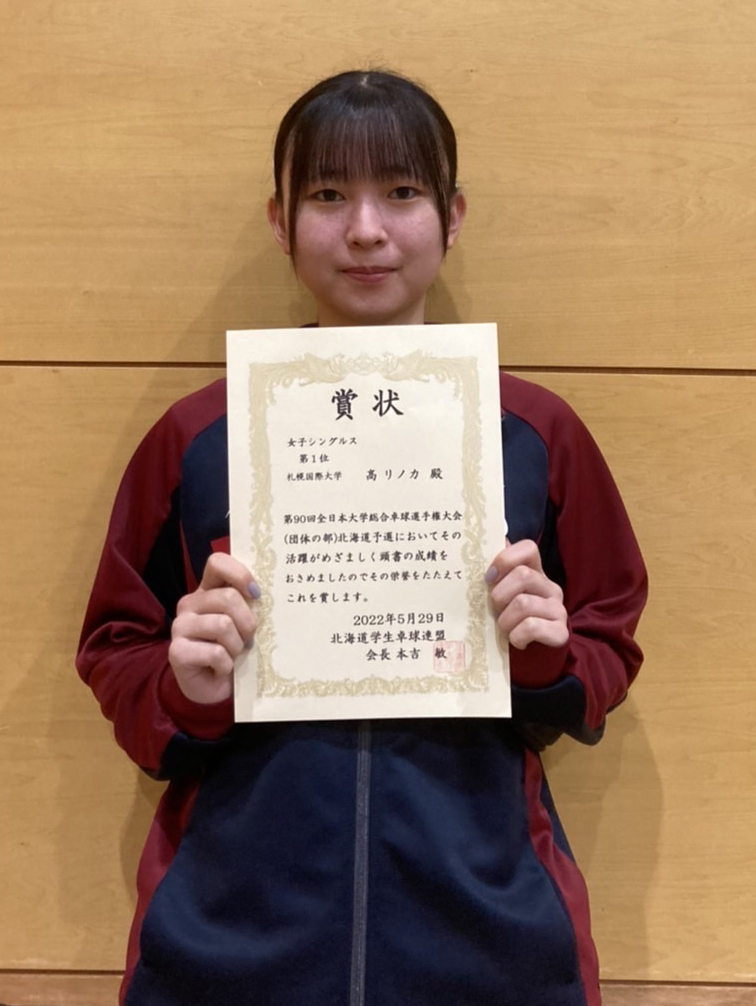 賞状
女子シングルス
第1位
札幌国際大学 高 リノカ 殿
第90回全日本大学総合卓球選手権大会
(団体の部)北海道予選においてその
活躍がめざましく頭書の成績を
おさめましたのでその栄誉をたたえて
これを賞します。
2022年5月29日
北海道学生卓球連盟
会長 本吉 敏